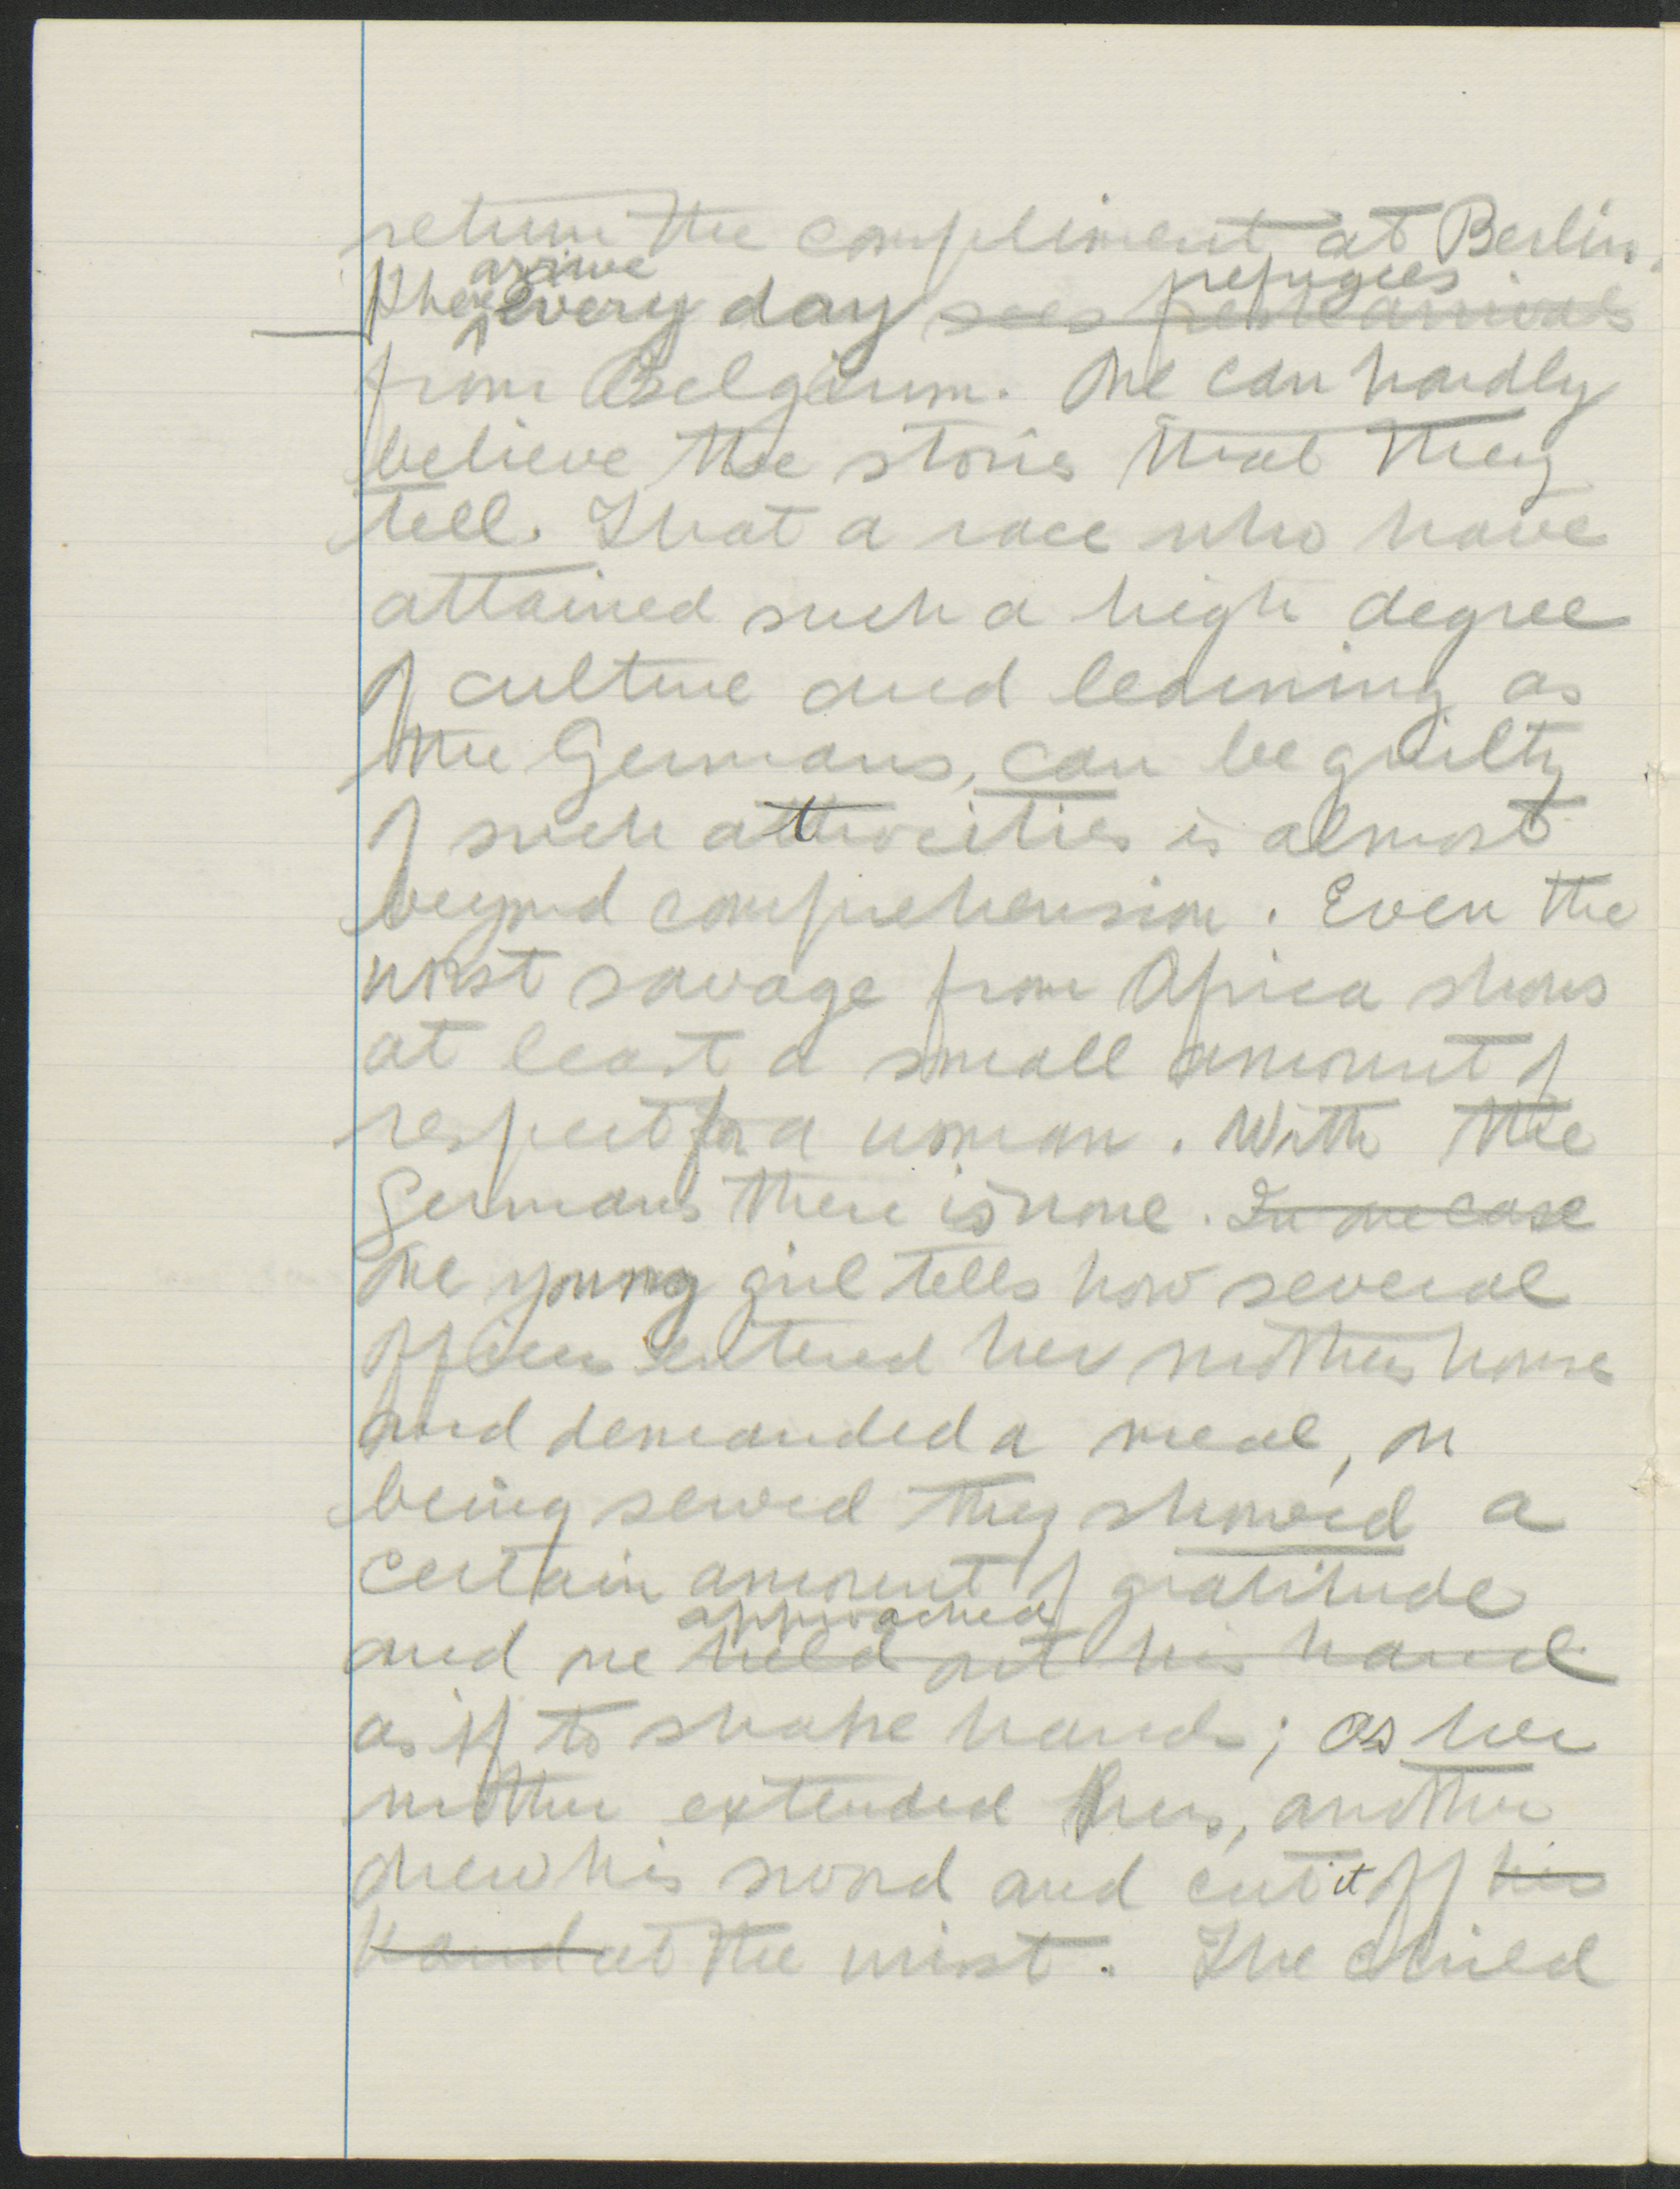 return the compliment at Berlin.
There arrive every day sees fresh arrivals refugees
from Belgium. One can hardly
believe the stories that they
tell. That a race who have
attained such a high degree
of culture and learning as
the Germans, can be guilty
of such attrocities is almost
beyond comprehension. Even the
worst savage from Africa shows
at least a small amount of
respect for a woman. With the
Germans there is none. In one case
One young girl tells how several
officers entered her mothers house
and demanded a meal, on
being served they showed a
certain amount of gratitude
and one held out his hand approached
as if to shake hands; as her
mother extended hers, another
drew his sword and cut it off his
hand at the wrist. The child